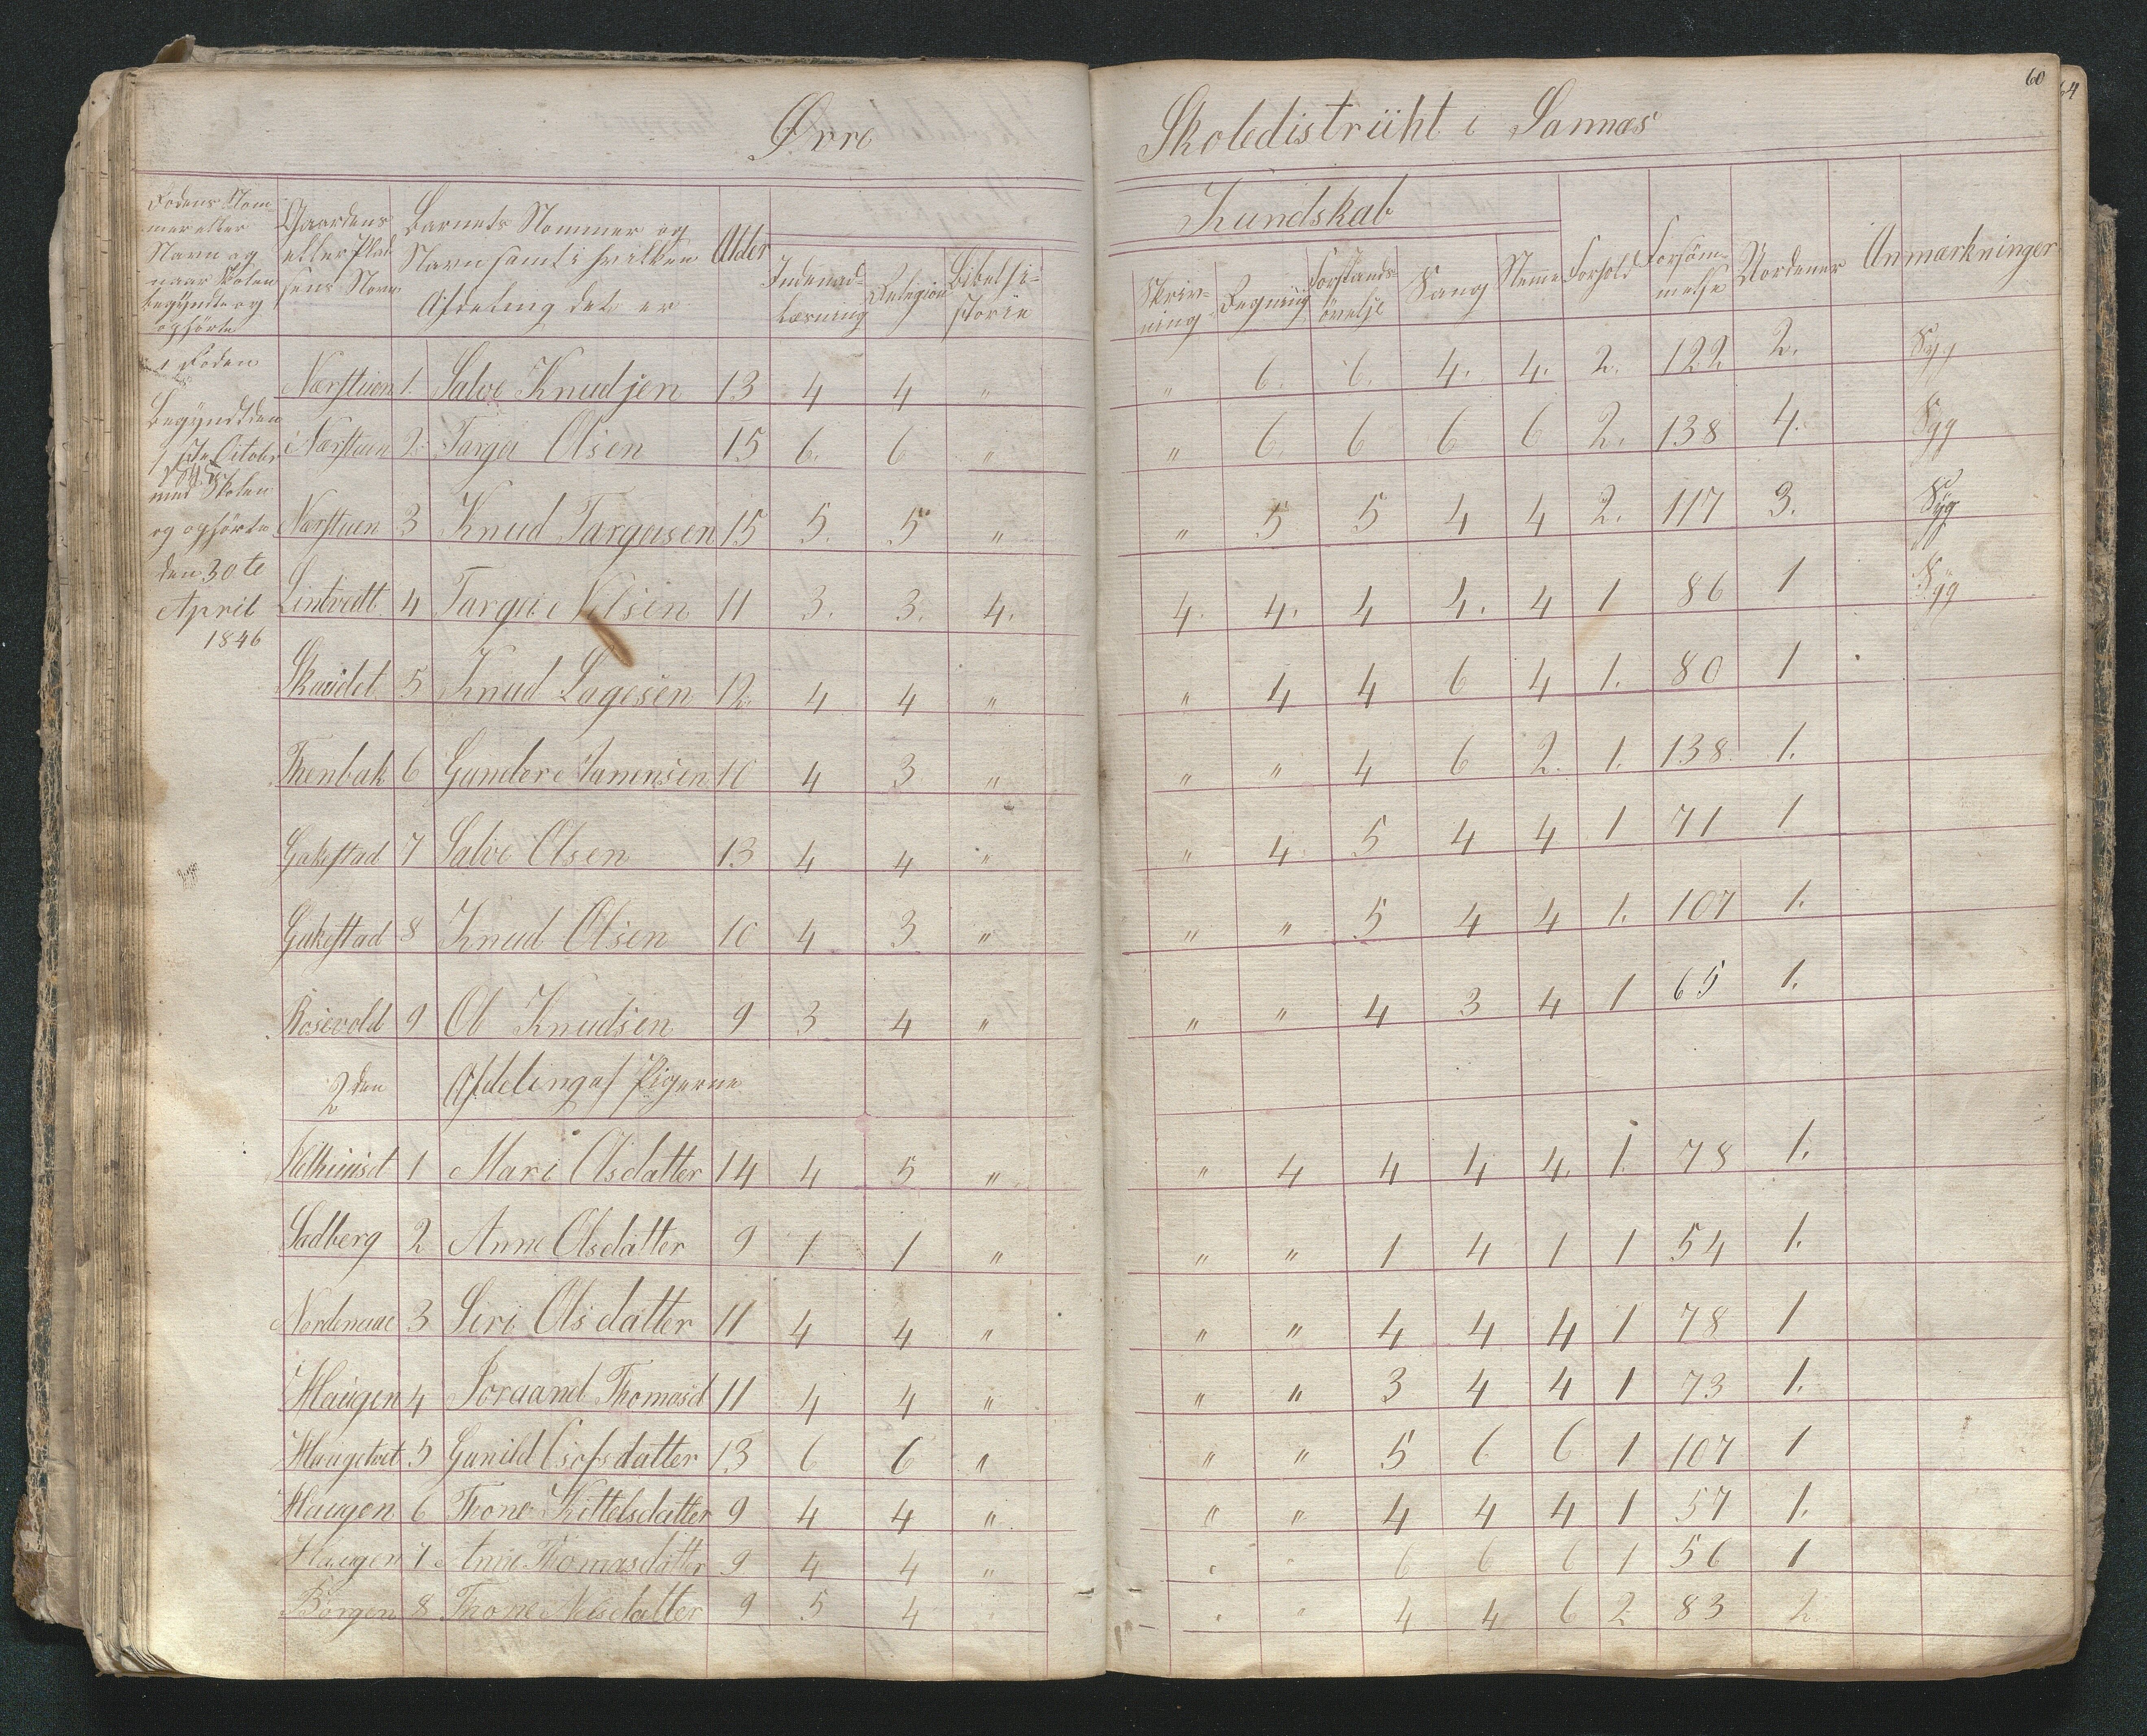 60
64
Øvre Skoledistriikt i Sannæs
Rodens Nommer eller Navn og naar Skolen begyndte og ophørte
Gaardens eller Pladsens Navn
Barnets Nommer og Navn samt i hvilken Afdeling det er
Alder
Kundskab
Indenadlæsning
Relegion
Bibelhistorie
Skrivning
Regning
Forstandsøvelse
Sang
Nemme
Forhold
Forsømmelse
Uordener
Anmærkninger
1 Roden
Begyndt den
1ste October
1845
med Skolen
og ophørte
den 30te
April
1846
Nærstuen 1. Salve Knudsen 13 4 4 " " 6. 6. 4. 4. 2. 122 2. Syg
Nærstuen 2. Targei Olsen 15 6. 6 " " 6. 6 6 6 2. 138 4. Syg
Nærstuen 3 Knud Targeisen 15 5. 5 " " 5 5 4 4 2. 117 3. Syg
Lintvedt 4 Targei Nilsen 11 3. 3. 4. 4. 4. 4 4. 4 1 86 1 Syg
5 Knud Lagesen 12. 4 4 " " 4 4 6 4 1. 80 1
6 Gundere 10 4 3 " " " 4 6 2. 1. 138. 1.
Gakestad 7 Salve Olsen 13 4 4 " " 4 5 4 4 1 71 1
Gakestad 8 Knud Olsen 10 4 3 " " " 5 4 4 1. 107 1.
Rosevold 9 Ol Knudsen 9 3 4 " " " 4 3 4 1 65 1.
2den Afdeling af Pigerne
1 Mari Olsdatter 14 4 5 " " 4 4 4 4. 1. 78 1.
Sadberg 2 Anne Olsdatter 9 1 1 " " " 1 4 1 1 54 1.
Nordenaae 3 Seri Olsdatter 11 4 4 " " " 4 4 4 1 78 1
Haugen 4 Joraand Thomasd 11 4 4 " " " 3 4 4 1 73 1.
Haugetvet 5 Gunild 13 6 6 " " " 5 6 6 1 107 1
Haugen 6 Thone Kittelsdatter 9 4 4 " " " 4 4 4 1 57 1.
Haugen 7 Anne Thomasdatter 9 4 4 " " " 6 6 6 1 56 1
Borgen 8 Thone Nilsdatter 9 5 4 " " " 4 4 6 2 83 2